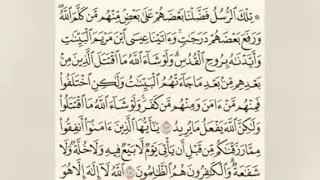 ۞ تِلْكَ ٱلرُّسُلُ فَضَّلْنَا بَعْضَهُمْ عَلَىٰ بَعْضٍ مِّنْهُم مَّن كَلَّمَ ٱللَّهُ
وَرَفَعَ بَعْضَهُمْ دَرَجَٰتٍ وَءَاتَيْنَا عِيسَى ٱبْنَ مَرْيَمَ ٱلْبَيِّنَٰتِ
وَأَيَّدْنَٰهُ بِرُوحِ ٱلْقُدُسِ وَلَوْ شَآءَ ٱللَّهُ مَا ٱقْتَتَلَ ٱلَّذِينَ مِنۢ
بَعْدِهِم مِّنۢ بَعْدِ مَا جَآءَتْهُمُ ٱلْبَيِّنَٰتُ وَلَٰكِنِ ٱخْتَلَفُوا۟
فَمِنْهُم مَّنْ ءَامَنَ وَمِنْهُم مَّن كَفَرَ وَلَوْ شَآءَ ٱللَّهُ مَا ٱقْتَتَلُوا۟
وَلَٰكِنَّ ٱللَّهَ يَفْعَلُ مَا يُرِيدُ ٢٥٣ يَٰٓأَيُّهَا ٱلَّذِينَ ءَامَنُوٓا۟ أَنفِقُوا۟
مِمَّا رَزَقْنَٰكُم مِّن قَبْلِ أَن يَأْتِىَ يَوْمٌ لَّا بَيْعٌ فِيهِ وَلَا خُلَّةٌ وَلَا
شَفَٰعَةٌ وَٱلْكَٰفِرُونَ هُمُ ٱلظَّٰلِمُونَ ٢٥٤ ٱللَّهُ لَآ إِلَٰهَ إِلَّا هُوَ